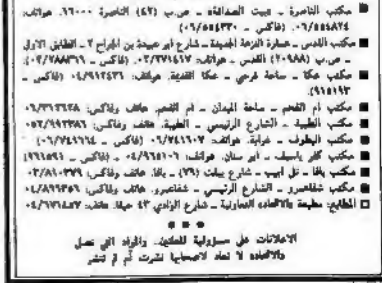 ■ مكتب الناصرة - «بيت الصداقة» - ص.ب (٤٢) الناصرة ١٦٠٠٠. هواتف:
٠٦/٥٥٤٨٢٤ (فاكس - ٠٦/٥٥٤٣٣٠)
■ مكتب القدس - عمارة النزهة الجديدة - شارع ابو عبيدة بن الجراح ٢ - الطابق الاول
- ص.ب (٢٠٩٨٨) القدس - هواتف: ٠٢/٢٧١٤٦٧ (فاكس - ٠٢/٢٨٨٣٦٦)
■ مكتب عكا - ساحة فرحي - عكا القديمة. هواتف: ٠٤/٩١٢٤٣٦ (فاكس -
٩١٥١٩٣)
■ مكتب ام الفحم - ساحة الميدان - ام الفحم. هاتف وفاكس:
■ مكتب الطيبة - الشارع الرئيسي - الطيبة. هاتف وفاكس:
■ مكتب البطوف - عرابة. هواتف: ٠٦/٧٤٦٦٠٢ (فاكس - ٠٦/٧٤٦٦٦٤)
■ مكتب كفر ياسيف - ابو سنان. هواتف: ٠٤/٩٦٥١٠٦ (فاكس - ٩٦١٥٩١)
■ مكتب يافا - تل ابيب - شارع ييفت (٧٦) - يافا. هاتف وفاكس:
■ مكتب شفاعمرو - الشارع الرئيسي - شفاعمرو. هاتف وفاكس:
□ المطابع: مطبعة «الاتحاد» التعاونية - شارع الوادي ٤٣ حيفا. هاتف:
● ● ●
الاعلانات على مسؤولية المعلنين. والمواد التي تصل
«الاتحاد» لا تعاد لاصحابها نشرت أم لم تنشر